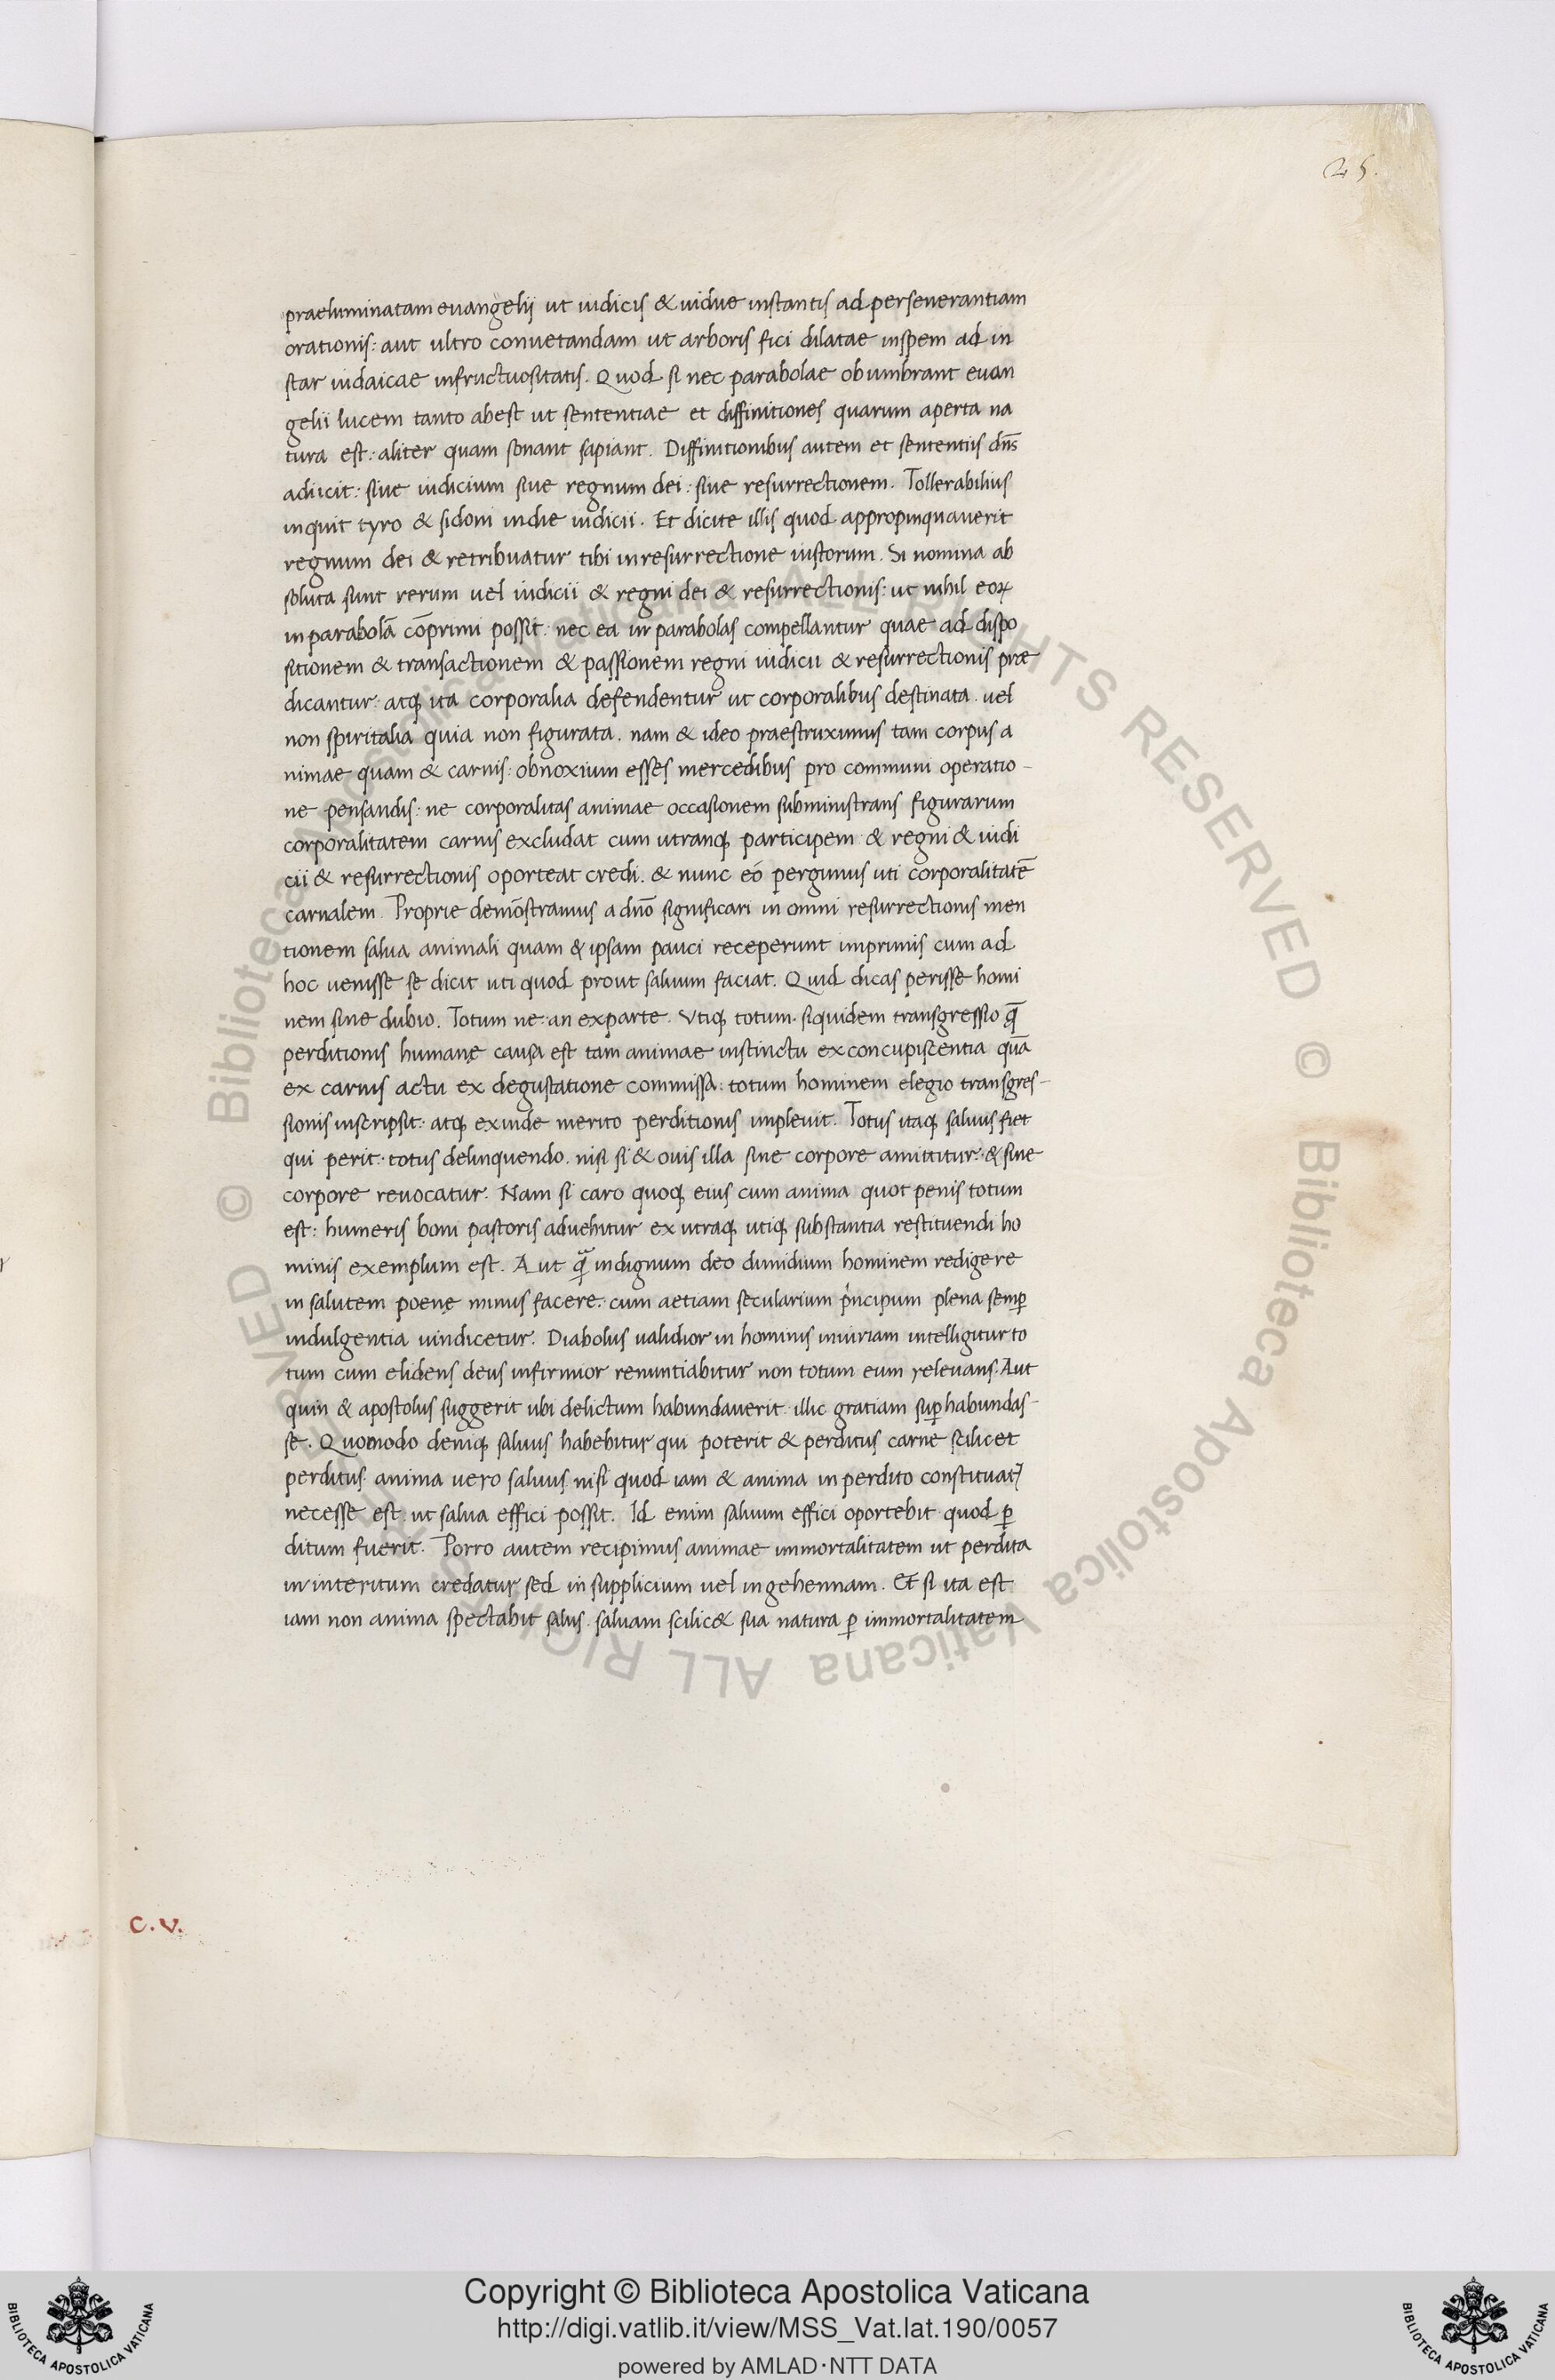 25.
praeluminatam euangelij ut iudicis & uidue instantis ad perseuerantiam
orationis: aut ultro conuetandam ut arboris fici dilatae inspem ad in
star iudaicae infructuositatis. Quod si nec parabolae obumbrant euan
gelii lucem tanto abest ut sententiae et diffinitiones quarum aperta na
tura est: aliter quam sonant sapiant. Diffinitionibus autem et sententiis dn̄s
adiicit: siue iudicium siue regnum dei: siue resurrectionem. Tollerabilius
inquit tyro & sidoni indie iudicii. Et dicite illis quod appropinquauerit
regnum dei & retribuatur tibi inresurrectione iustorum. Si nomina ab
soluta sunt rerum uel iudicii & regni dei & resurrectionis: ut nihil eoꝝ
inparabolā cōprimi possit: nec ea in parabolas compellantur quae ad dispo
sitionem & transactionem & passionem regni iudicii & resurrectionis præ
dicantur: atq; ita corporalia defendentur ut corporalibus destinata. uel
non spiritalia quia non figurata. nam & ideo praestruximus tam corpus a
nimae quam & carnis: obnoxium esses mercedibus pro communi operatio-
ne pensandis: ne corporalitas animae occasionem subministrans figurarum
corporalitatem carnis excludat cum utranq; participem & regni & iudi
cii & resurrectionis oporteat credi. & nunc eó pergimus uti corporalitatē
carnalem. Proprie demōstramus a dn̄o significari in omni resurrectionis men
tionem salua animali quam & ipsam pauci receperunt imprimis cum ad
hoc uenisse se dicit uti quod prout saluum faciat. Quid dicas perisse homi
nem sine dubio. Totum ne: an exparte. Vtiq; totum. siquidem transgressio q̄
perditionis humanę causa est tam animae instinctu exconcupiscentia quā
ex carnis actu ex degustatione commissa: totum hominem elegio transgres-
sionis inscripsit: atq; exinde merito perditionis impleuit. Totus itaq; saluus fiet
qui perit: totus delinquendo. nisi si & ouis illa sine corpore amittitur: & sine
corpore reuocatur. Nam si caro quoq; eius cum anima quot penis totum
est: humeris boni pastoris aduehitur ex utraq; utiq; substantia restituendi ho
minis exemplum est. Aut q̄ indignum deo dimidium hominem redigere
in salutem poenę minus facere: cum aetiam secularium pr̍ncipum plena semꝑ
indulgentia uindicetur. Diabolus ualidior in hominis iniuriam intelligitur to
tum cum elidens deus infirmior renuntiabitur non totum eum releuans. Aut
quin & apostolus suggerit ubi delictum habundauerit: illic gratiam suꝑhabundas-
se. Quomodo deniq; saluus habebitur qui poterit & perditus carne scilicet
perditus: anima uero saluus nisi quod iam & anima in perdito constituat᷑
necesse est: ut salua effici possit. Id enim saluum effici oportebit quod ꝑ
ditum fuerit. Porro autem recipimus animae immortalitatem ut perdita
in interitum credatur sed in supplicium uel ingehennam. Et si ita est
iam non anima spectabit salus. saluam scilic& sua natura ꝑ immortalitatem
C. V.
Copyright © Biblioteca Apostolica Vaticana
http://digi.vatlib.it/view/MSS_Vat.lat.190/0057
powered by AMLAD·NTT DATA